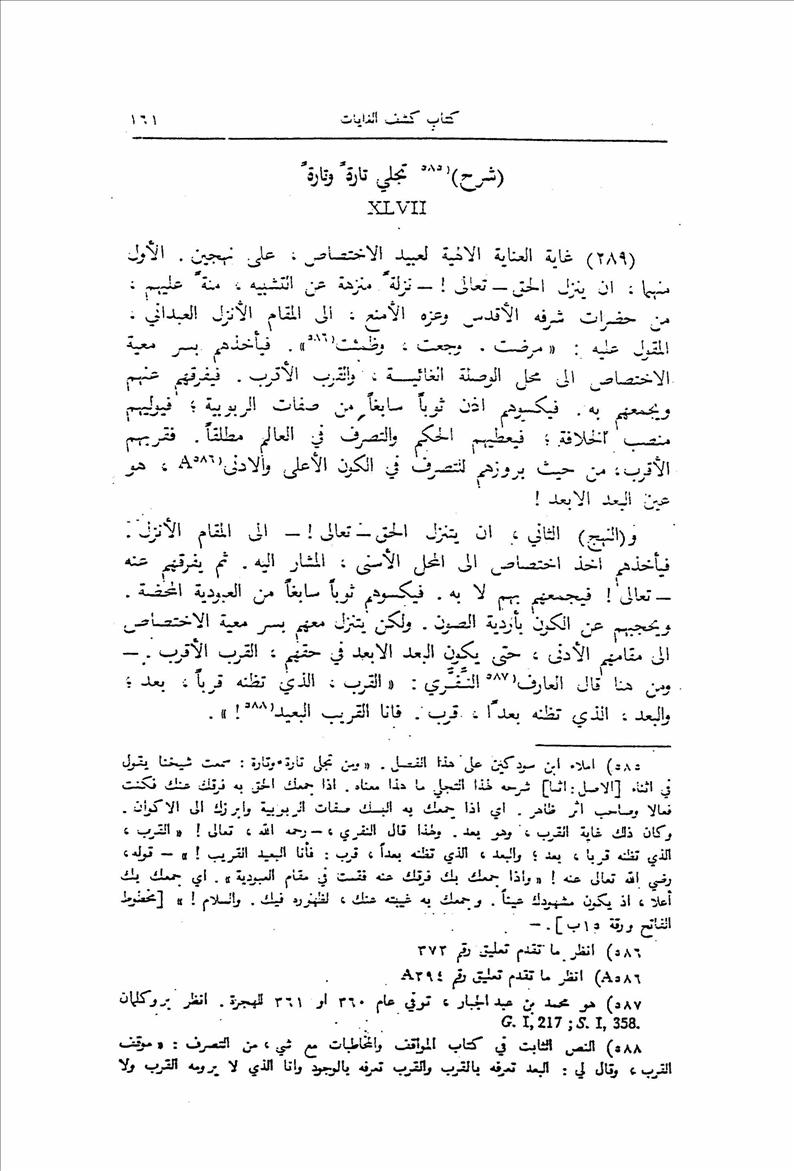 كتاب كشف الغايات ١٦١
(شرح)⁽٥٨٥ تجلي تارةً وتارةً
XLVII
(٢٨٩) غاية العناية الالهية لعبيد الاختصاص ، على نهجين . الأول
منهما ، ان يتنزل الحق ـ تعالى ! ـ نزلةً منزهة عن التشبيه ، منةً عليهم ،
من حضرات شرفه الأقدس وعزه الأمنع ، الى المقام الأنزل العبداني ،
المقول عليه : « مرضت . وجعت ، وظمئت⁽٥٨٦» . فيأخذهم بسر معية
الاختصاص الى محل الوصلة الغائيـة ، والقرب الأقرب . فيفرقهم عنهم
ويجمعهم به . فيكسوهم اذن ثوباً سابغاً من صفات الربوبية ؛ فيوليهم
منصب الخلافة ؛ فيعطيهم الحكم والتصرف في العالم مطلقاً . فقربهم
الأقرب، من حيث بروزهم للتصرف في الكون الأعلى والادنى⁽A٥٨٦ ، هو
عين البعد الابعد !
و(النهج) الثاني ، ان يتنزل الحق ـ تعالى ! ـ الى المقام الأنزل .
فيأخذهم اخذ اختصاص الى المحل الأسنى ، المشار اليه . ثم يفرقهم عنه
ـ تعالى ! فيجمعهم بهم لا به . فيكسوهم ثوباً سابغاً من العبودية المحضة .
ويحجبهم عن الكون بأردية الصون . ولكن يتنزل معهم بسر معية الاختصاص
الى مقامهم الأدنى ، حتى يكون البعد الابعد في حقهم ، القرب الأقرب . ـ
ومن هنا قال العارف⁽٥٨٧ النفَّري : « القرب ، الذي تظنه قرباً ، بعد ؛
والبعد ، الذي تظنه بعدًا ، قرب . فانا القريب البعيد⁽٥٨٨ ! » .
٥٨٥) املاء ابن سودكين على هذا الفصل . « ومن تجلى تارة وتارة : سمعت شيخنا يقول
في اثناء [الاصل : اثنا] شرحه لهذا التجلي ما هذا معناه . اذا جمعك الحق به فرقك عنك فكنت
فعالا وصاحب اثر ظاهر . اي اذا جمعك به البسك صفات الربوبية وابرزك الى الاكوان .
وكان ذلك غاية القرب ، وهو بعد . ولهذا قال النفري ، ـ رحمه الله ، تعالى ! « القرب ،
الذي تظنه قربا ، بعد ؛ والبعد ، الذي تظنه بعداً ، قرب : فأنا البعيد القريب ! » ـ قوله ،
رضي الله تعالى عنه ! « واذا جمعك بك فرقك عنه فقمت في مقام العبودية » . اي جمعك بك
أعلا ، اذ يكون مشهودك عيناً . وجمعك به غيبته عنك ، لظهوره فيك . والسلام ! » [مخطوط
الفاتح ورقة ١٥ب] . ـ
٥٨٦) انظر ما تقدم تعليق رقم ٣٧٣
A٥٨٦) انظر ما تقدم تعليق رقم A٣٩٤
٥٨٧) هو محمد بن عبد الجبار ، توفي عام ٣٦٠ او ٣٦١ للهجرة . انظر بروكلمان
G. I, 217 ; S. I, 358.
٥٨٨) النص الثابت في كتاب المواقف والمخاطبات مع شيء من التصرف : « موقف
القرب ، وقال لي : البعد تعرفه بالقرب والقرب تعرفه بالوجود وانا الذي لا يرومه القرب ولا